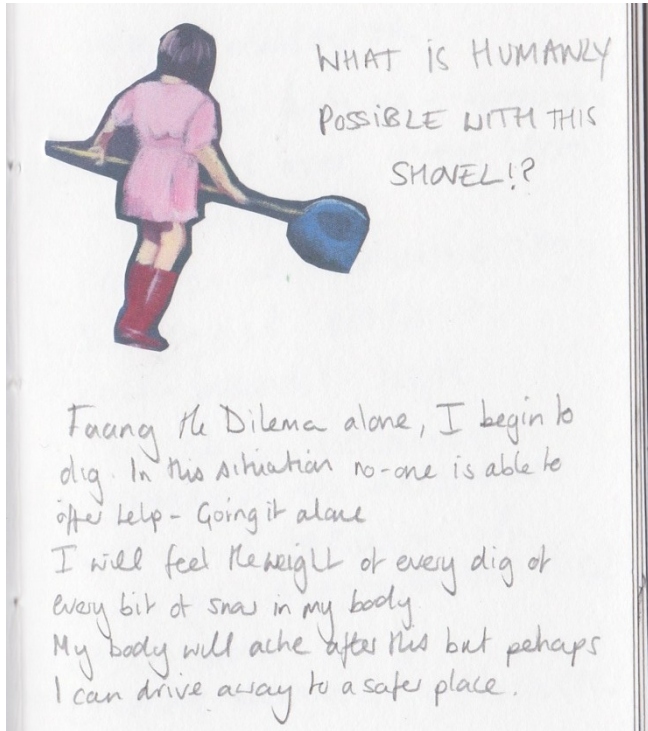 WHAT IS HUMANLY
POSSIBLE WITH THIS
SHOVEL!?
Facing the Dilema alone, I begin to
dig. In this situation no-one is able to
offer help - Going it alone
I will feel the weight of every dig of
every bit of snow in my body
My body will ache after this but pehaps
I can drive away to a safer place.